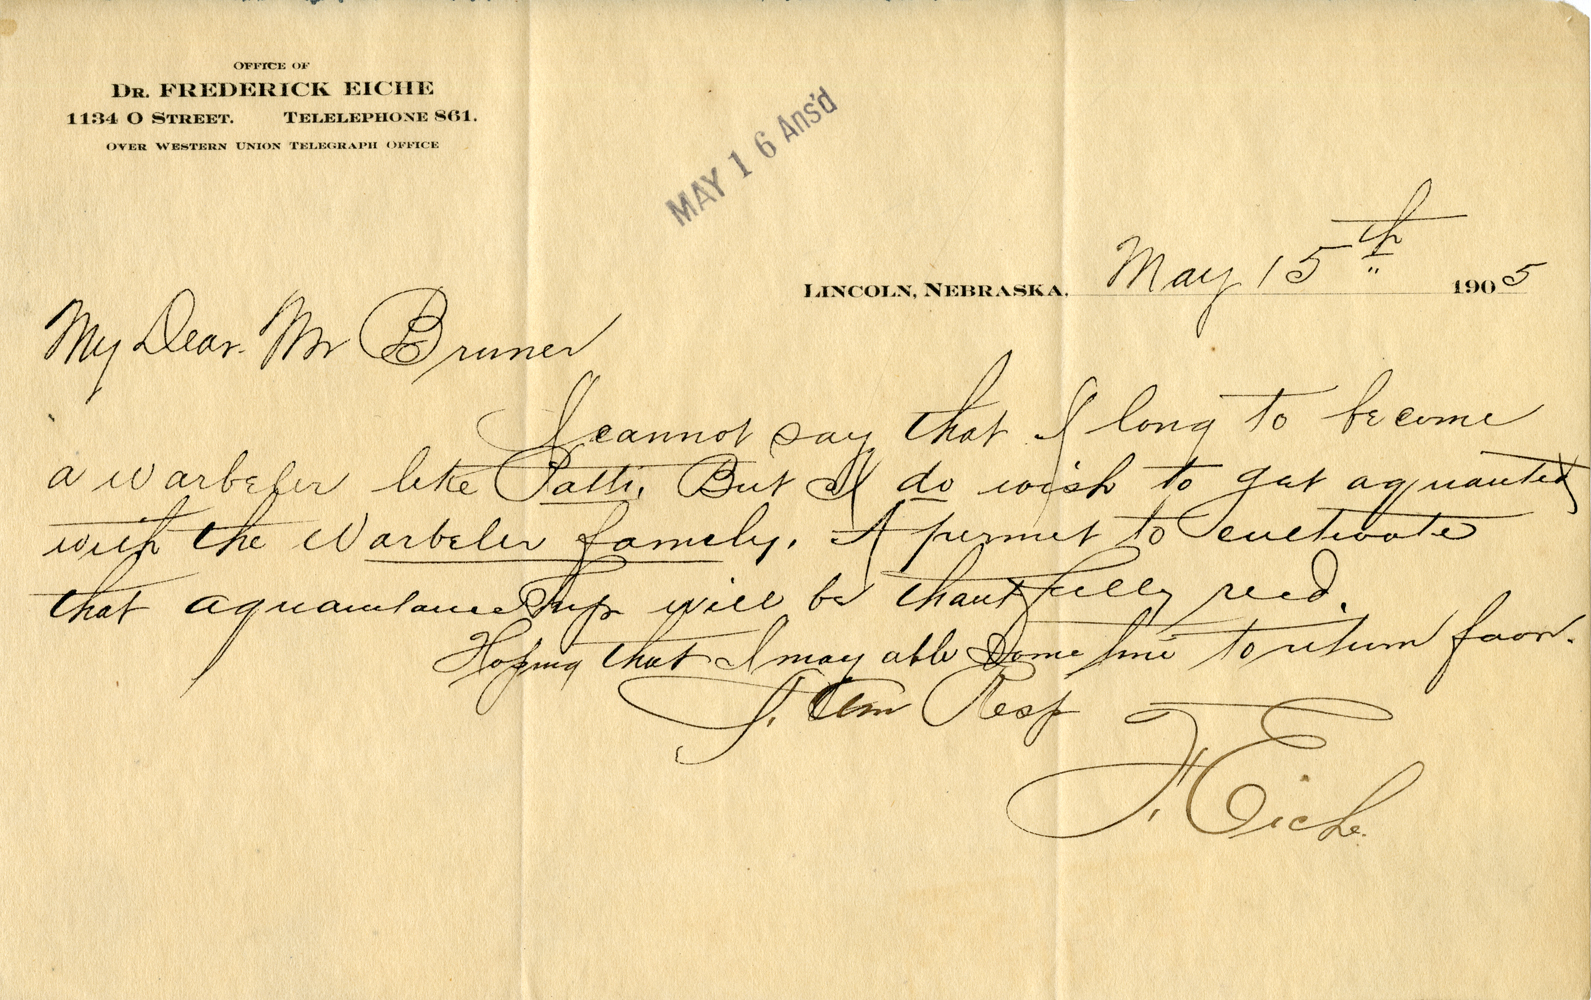 OFFICE OF
DR. FREDERICK EICHE
1134 O STREET. TELELEPHONE 861.
OVER WESTERN UNION TELEGRAPH OFFICE
MAY 16 Ans'd
LINCOLN, NEBRASKA. May 15th 1905
My Dear. Mr Bruner
I cannot say that I long to become
a Warbeler like Patti. But I do wish to get aquanted
with the Warbeler family. A permit to cultivate
that aquaintance Ship will be thankfully recd.
Hoping that I may able Some time to return favor.
I. am Resp
F. Eiche.